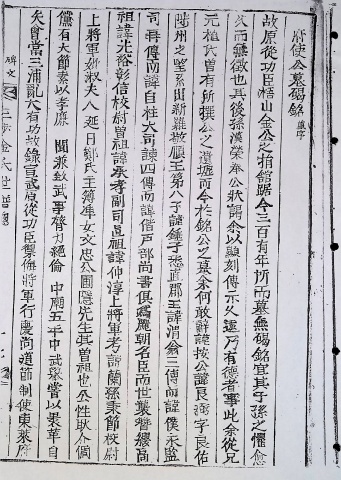 府使公墓碣銘 并序
故原從功臣梧山金公之捐館踰今三百有年所而墓無碣銘宜其子孫之懼愈
久而無徵也其後孫漢榮奉公狀謁余以顯刻傳示久遠乃有德者事此余從兄
元植氏曾有所撰公之遺墟而今於銘公之墓余何敢辭謹按公諱良 字良佑
陟州之望系出新羅敬順王第八子諱錘子悉直郡王諱渭翁三傳而諱僕永監
司再傳而諱自柱大司諫四傳而諱偕戶部尚書俱爲麗朝名臣而世襲簪纓高
祖諱光裕彰信校尉曾祖諱承孝副司直祖諱仲淳上將軍考諱蘭孫秉節校尉
上將軍妣淑夫人延日鄭氏主簿庠女文忠公圃隱先生其曾祖也公性耿介倜
儻有大節素以孝廉 聞兼致武事膂力絕倫 中廟五年中武擧嘗以裹革自
矢曾當三浦亂大有功故錄宣武原從功臣禦侮將軍行慶尚道節制使東萊府
碑文
三陟金氏世譜